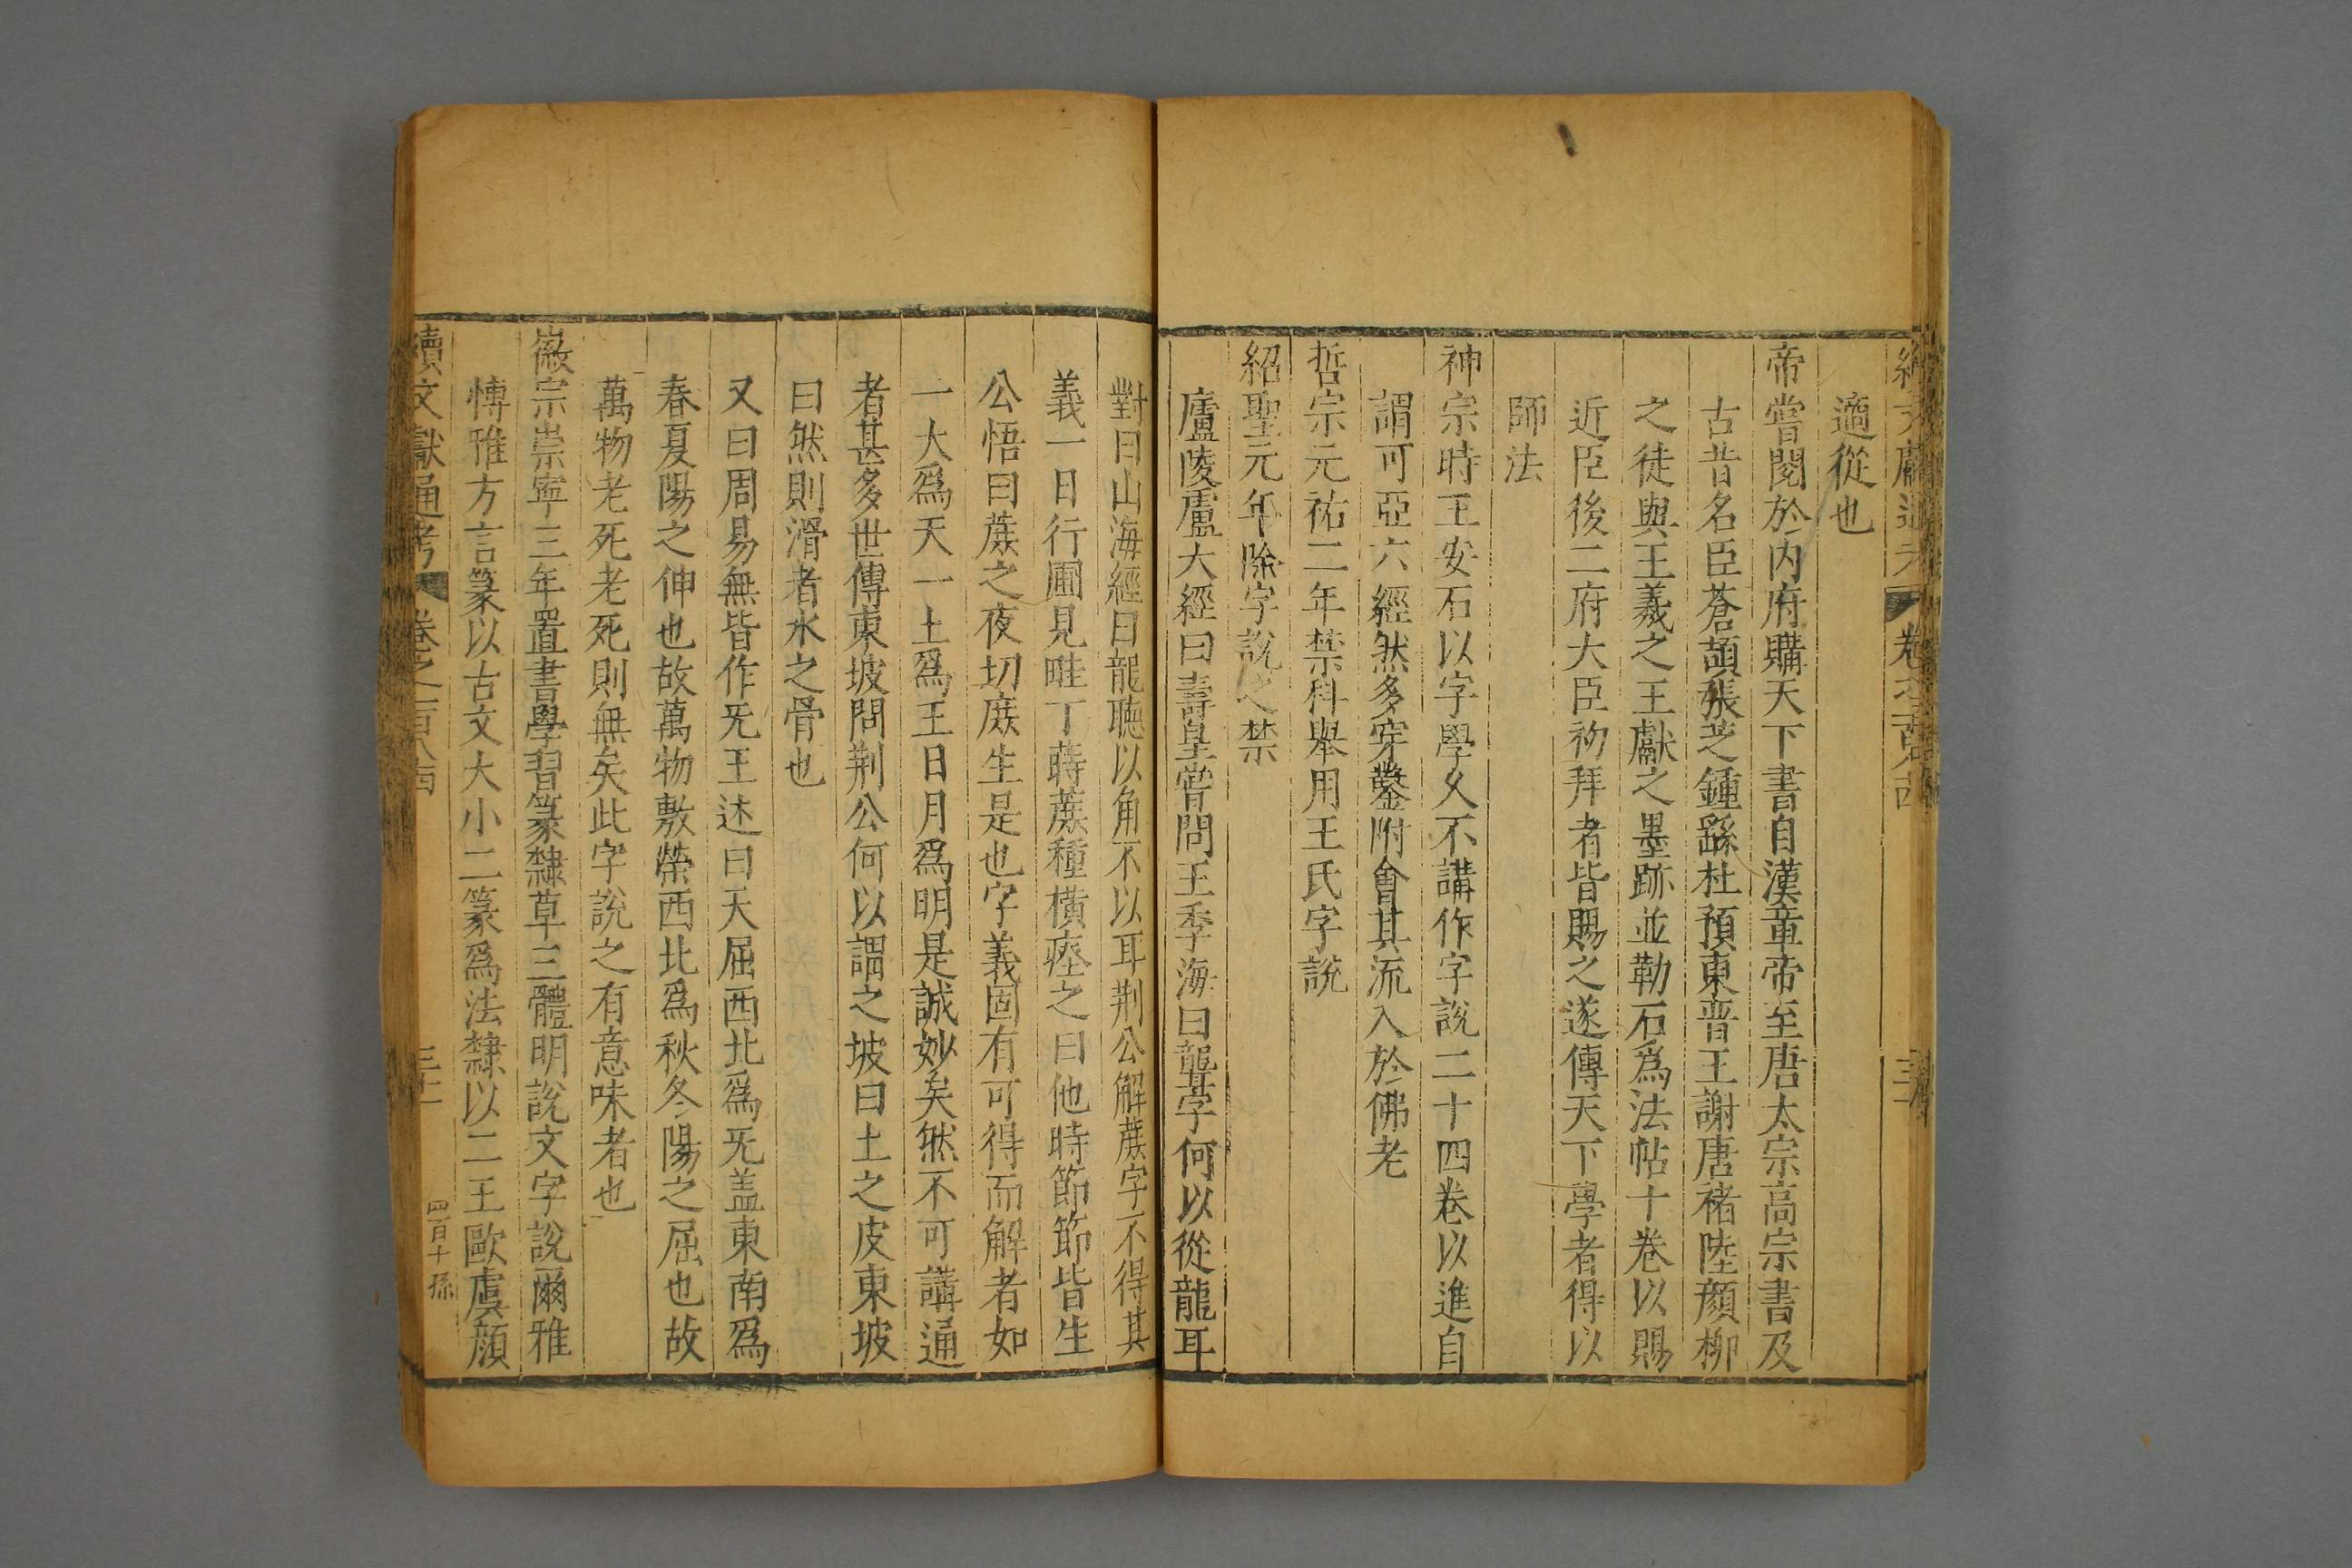 適從也
帝嘗閱於内府購天下書自漢章帝至唐太宗高宗書及
古昔名臣蒼頡張芝鍾繇杜預東晋王謝唐褚陸顔柳
之徒與王羲之王獻之墨跡並勒石爲法帖十卷以賜
近臣後二府大臣初拜者皆賜之遂傳天下學者得以
師法
神宗時王安石以字學久不講作字說二十四卷以進自
謂可亞六經然多穿鑿附會其流入於佛老
哲宗元祐二年禁科舉用王氏字說
紹聖元年除字說之禁
廬陵盧大經曰壽皇嘗問王季海曰聾字何以從龍耳
對曰山海經曰龍聴以角不以耳荆公解蔗字不得其
義一日行圃見畦丁蒔蔗種橫瘞之曰他時節節皆生
公悟曰蔗之夜切庶生是也字義固有可得而解者如
一大爲天一土爲王日月爲明是誠妙矣然不可講通
者甚多世傳東坡問荆公何以謂之坡曰土之皮東坡
曰然則滑者水之骨也
又曰周易無皆作旡王述曰天屈西北爲旡盖東南爲
春夏陽之伸也故萬物敷榮西北爲秋冬陽之屈也故
萬物老死老死則無矣此字說之有意味者也
徽宗崇寧三年置書學習篆隸草三體明說文字說爾雅
愽雅方言篆以古文大小二篆爲法隸以二王歐虞顔
續文獻通考 卷之一百八十四 三十一 四百十孫